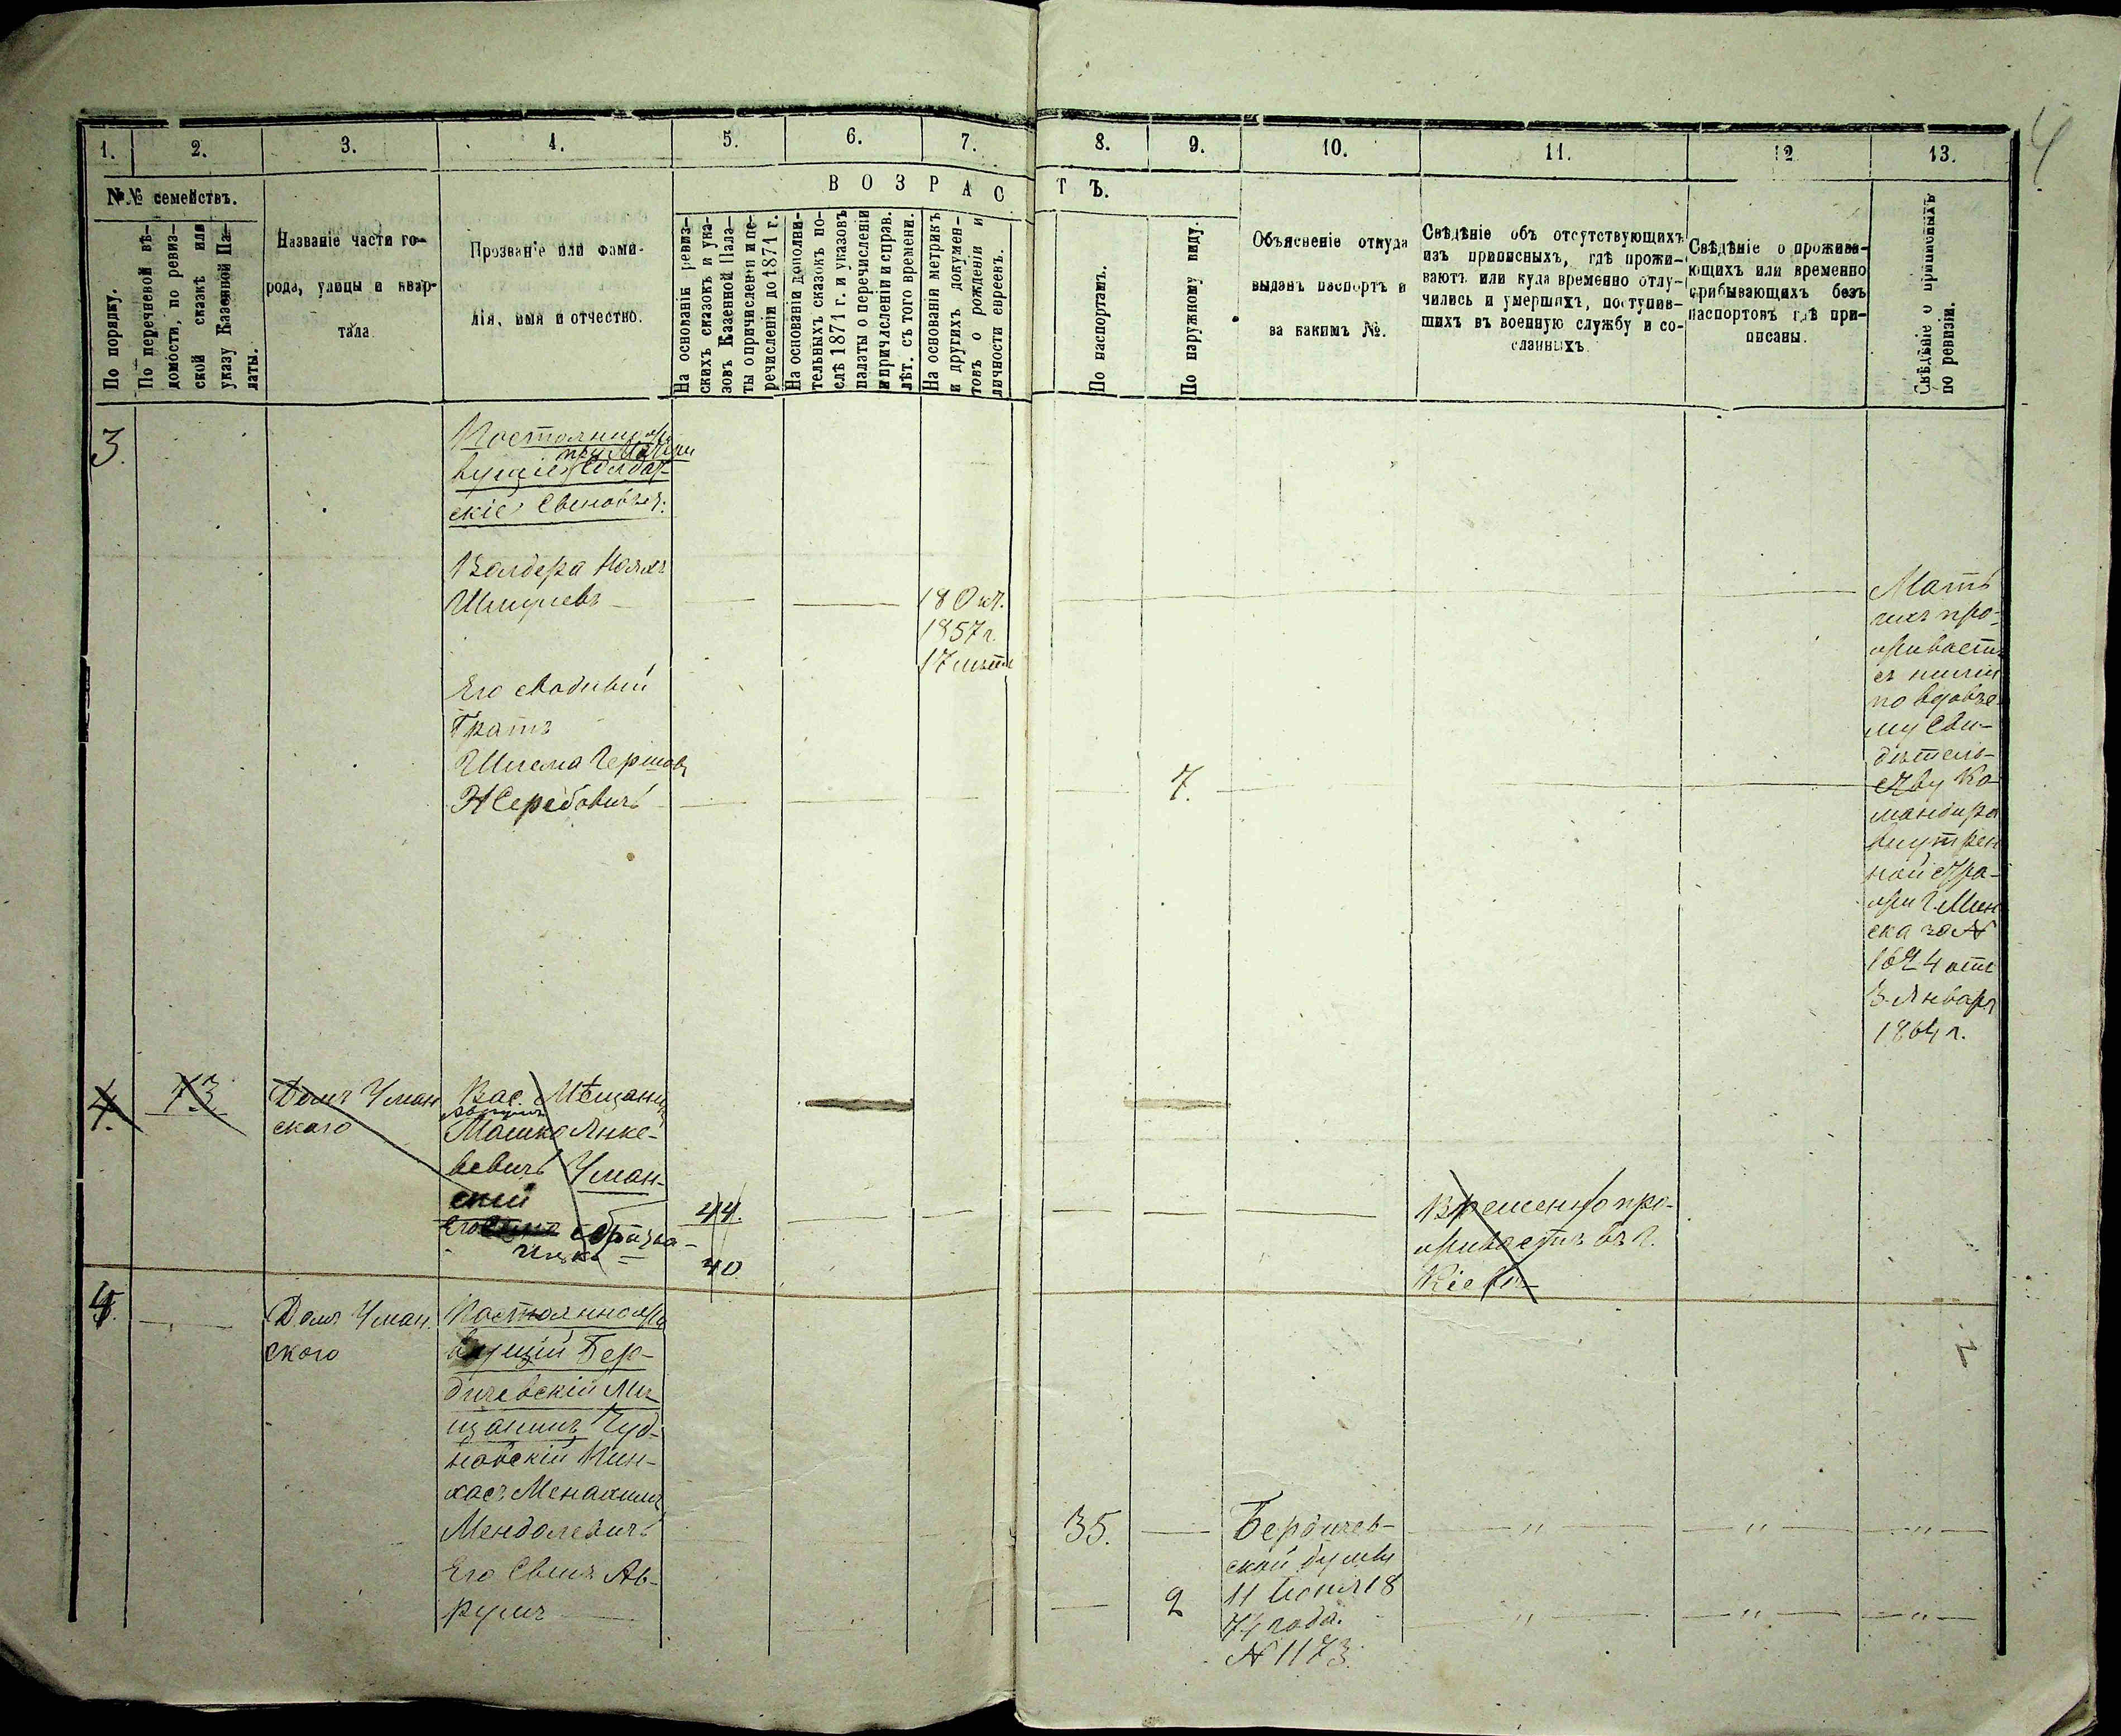 4
1. 2. 3. 4. 5. 6. 7. 8. 9. 10. 11. 12 13.
№№ семействъ.
По порядку.
По перечневой вѣ-
домости, по ревиз-
ской сказкѣ или
указу Казенной Па-
латы.
Названіе части го-
рода, улицы и квар-
тала
Прозваніе или фами-
лія, имя и отчество.
ВОЗРАСТЪ.
На основаніи ревиз-
скихъ сказокъ и ука-
зовъ Казенной Пала-
ты о причисленіи и пе-
речисленіи до 1871 г.
На основаніи дополни-
тельныхъ сказокъ по-
слѣ 1871 г. и указовъ
палаты о перечисленіи
и причисленіи и справ.
лѣт. съ того времени.
На основаніи метрикъ
и другихъ докумен-
товъ о рожденіи и
личности евреевъ.
По паспортамъ.
По наружному виду.
Объясненіе откуда
выданъ паспортъ и
за какимъ №.
Свѣдѣніе объ отсутствующихъ
изъ приписныхъ, гдѣ прожи-
ваютъ или куда временно отлу-
чились и умершихъ, поступив-
шихъ въ военную службу и со-
сланныхъ
Свѣдѣніе о прожива-
ющихъ или временно
прибывающихъ безъ
паспортовъ гдѣ при-
писаны.
Свѣдѣніе о приписныхъ
по ревизіи.
3.
Постоянножи
при Матери
вущіе Солдат-
скіе Сыновья:
Шмулевъ
18 Окт.
1857 г.
17 лѣтъ
Его сводный
Братъ
Шлема Гершовъ
7.
Мать
ихъ про-
живаетъ
съ ними
по вдовье-
му Сви-
дѣтель-
ству Ко-
мандира
внутрен
ной Стра-
жи Г. Мин
ска за №
1624 отъ
3 Января
1864 г.
4.
73
Домъ Уман
ского
Вас. Мѣщанинъ
Мошко Янке-
левичъ Уман-
скій
44.
40
Временно про-
живаетъ въ г.
Кіевѣ
4.
Домъ Уман.
ского
Постоянножи
вущій Бер-
дичевскій Мѣ
щанинъ Чуд-
новскій Пин-
хасъ Менахимъ
Менделевичъ
35.
Бердичев-
ской думы
11 Іюня 18
74 года.
№ 1173.
Его Сынъ Ав-
румъ
2